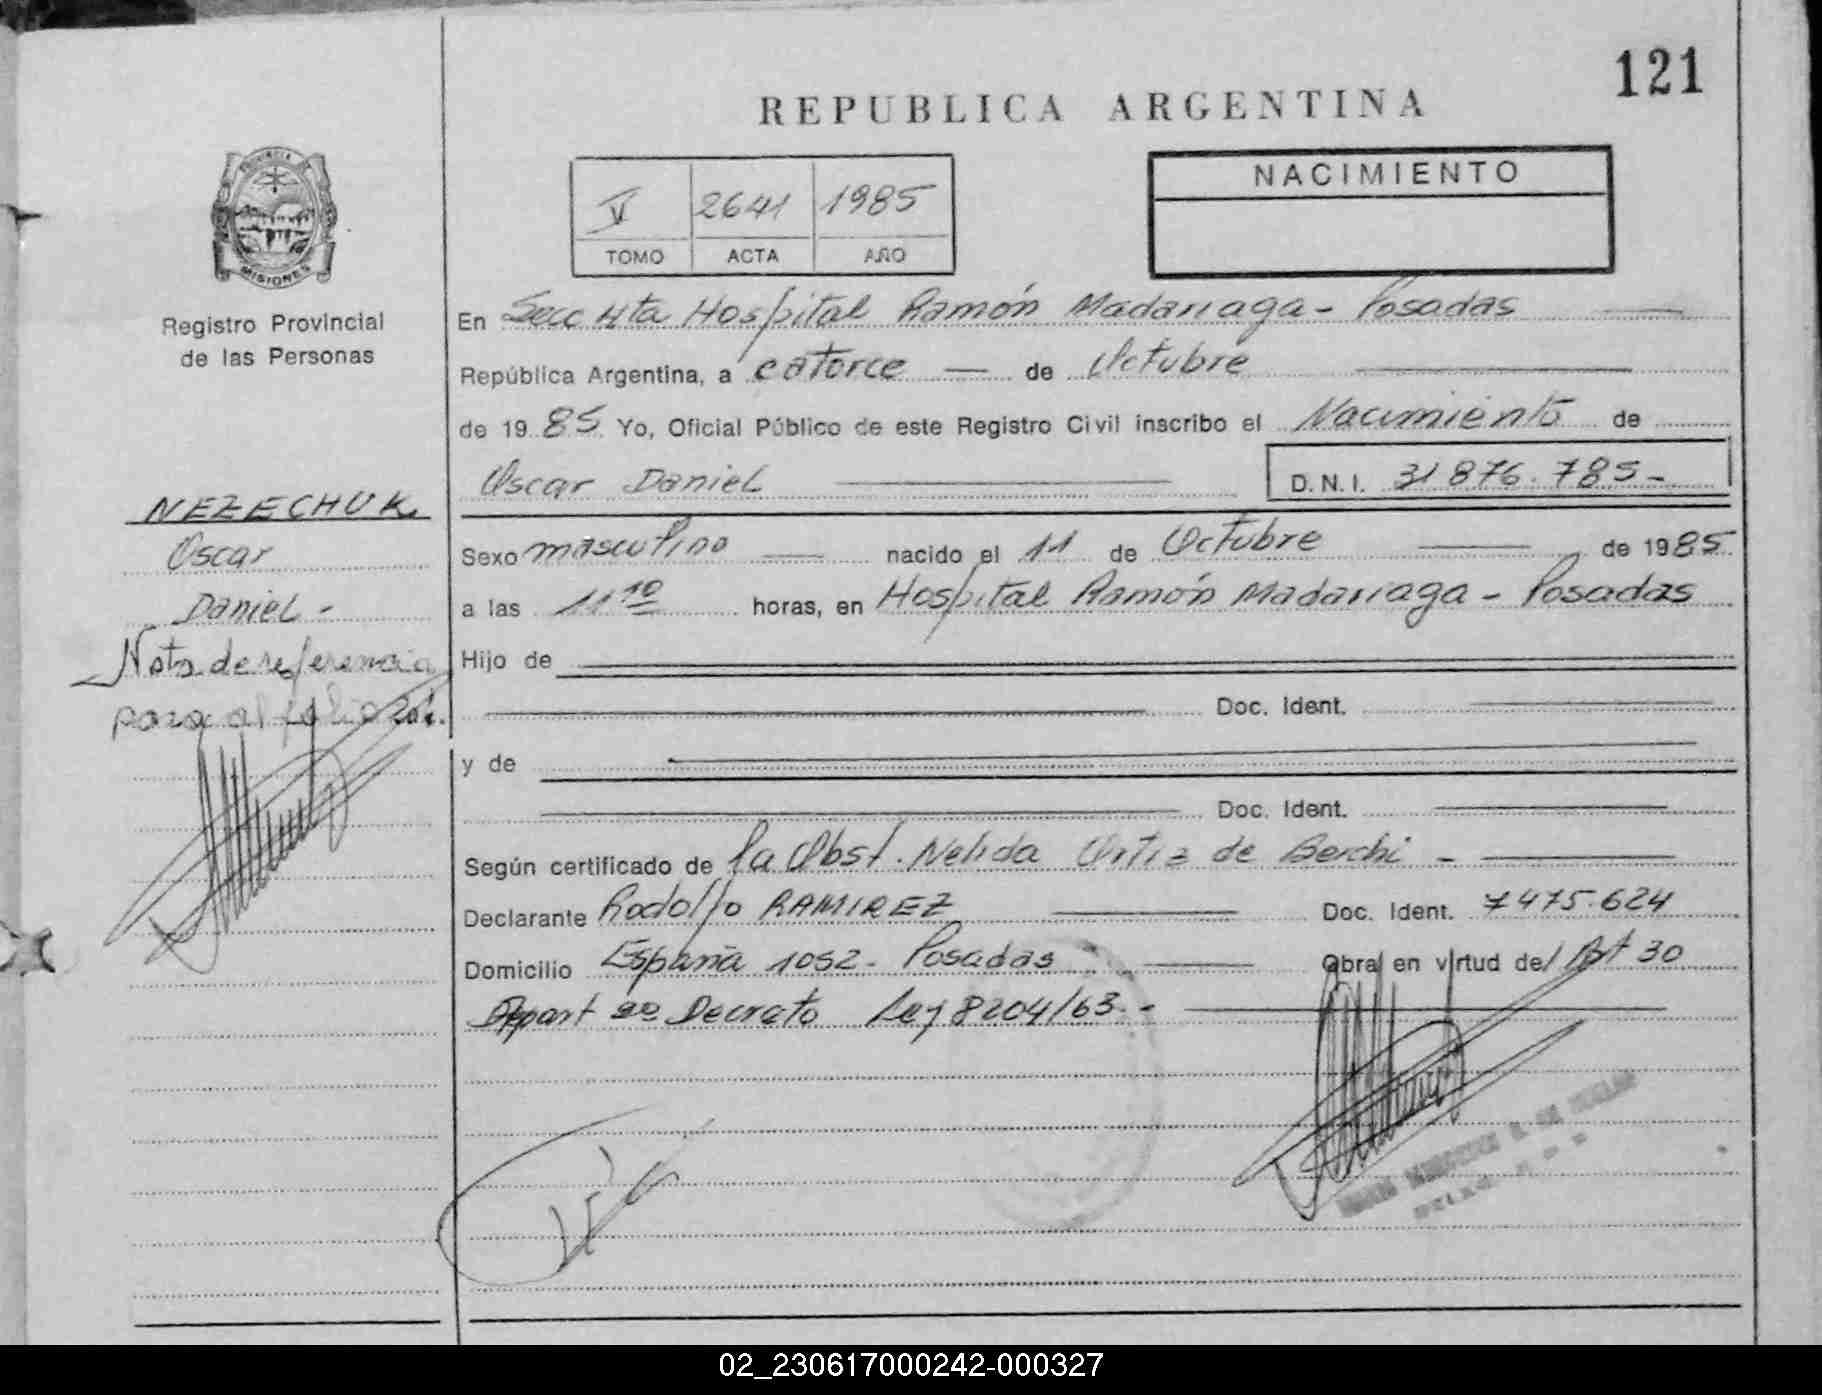 121
REPUBLICA ARGENTINA
PROVINCIA
MISIONES
Registro Provincial
de las Personas
V 2641 1985
TOMO ACTA AÑO
NACIMIENTO
En Secc 4ta Hospital Ramón Madariaga - Posadas
República Argentina, a catorce de Octubre
de 1985 Yo, Oficial Público de este Registro Civil inscribo el Nacimiento de
Oscar Daniel
D.N.I. 31 876.785-
NEZECHUK
Oscar
Daniel -
Nota de referencia
para al folio
Sexo masculino nacido el 11 de Octubre de 1985
a las 11 10 horas, en Hospital Ramón Madariaga - Posadas
Hijo de
Doc. Ident.
y de
Doc. Ident.
Según certificado de la Obst. Nelida Ortiz de Berchi -
Declarante Rodolfo RAMIREZ Doc. Ident. 7475.624
Domicilio España 1052 - Posadas Obra en virtud del Art 30
Apart 2º Decreto Ley 8204/63 -
02_230617000242-000327